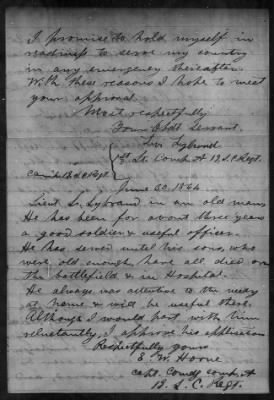 I promise to hold myself in
readiness to serve my country
in any emergency thereafter.
With these reasons I hope to meet
your approval
Most respectfully
Your Obdt Servant
1st Lt. Comp A 13 S.C. Regt.
June 20, 1864
Lieut S. Lybrand is an old man
He has been for about three years
a good soldier & useful officer.
He has served until his sons, who
were old enough, have all died on
the battlefield & in Hospital.
He always was attentive to the needy
at home & will be useful there.
Although I would part with him
reluctantly, I approve his application
Respectfully yours
S. W. Horne
capt. Comdg comp. A
13 S. C. Regt.